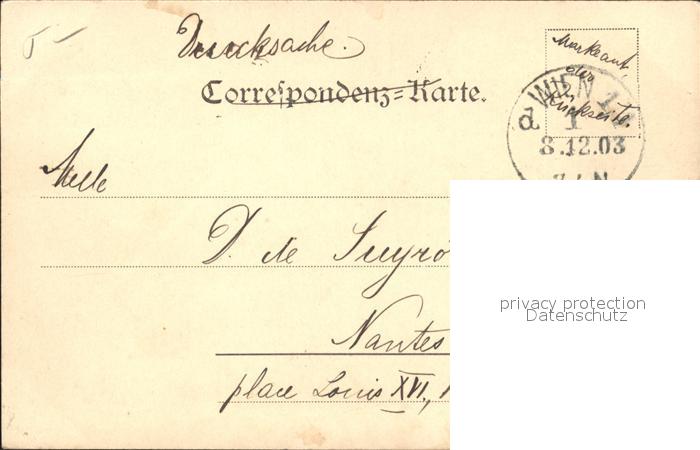 5-
Drucksache.
Correspondenz-Karte.
Marke auf
der
Rückseite.
WIEN 1/1
d 1
8.12.03
Melle
D. de Suyro
Nantes
place Louis XVI,
privacy protection
Datenschutz